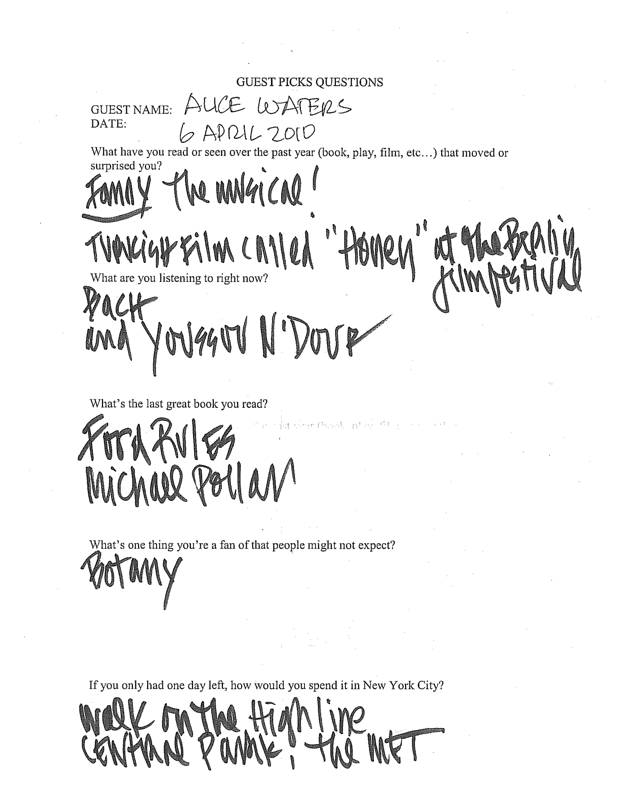 GUEST PICKS QUESTIONS
GUEST NAME: ALICE WATERS
DATE: 6 APRIL 2010
What have you read or seen over the past year (book, play, film, etc…) that moved or
surprised you?
Fanny The musical!
Turkish Film called "Honey" at the Berlin
filmfestival
What are you listening to right now?
Bach
and Youssou N'Dour
What's the last great book you read?
Food Rules
Michael Pollan
What's one thing you're a fan of that people might not expect?
Botany
If you only had one day left, how would you spend it in New York City?
Walk on the Highline
Central Park, the MET